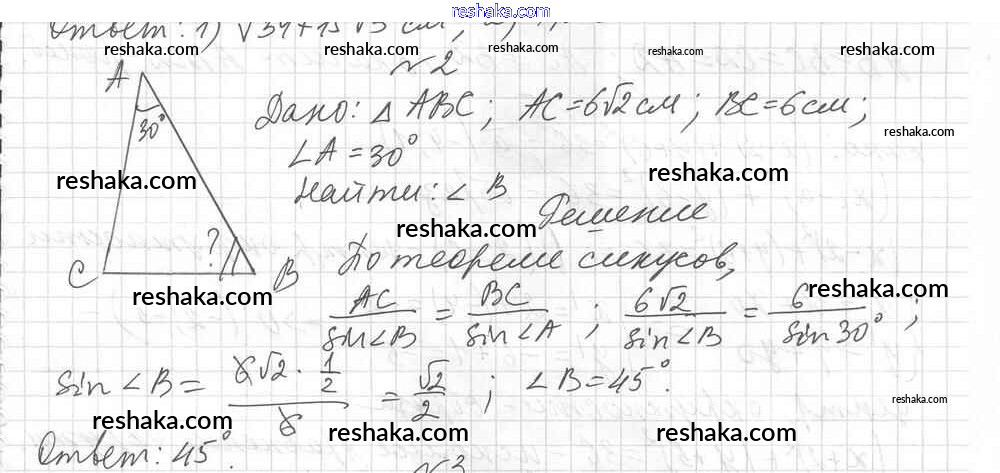 reshaka.com
Ответ: 1) √34+15√3 см;
reshaka.com
reshaka.com
reshaka.com
reshaka.com
№2
A
30°
Дано: △ ABC; AC=6√2 см; BC=6 см;
reshaka.com
∠A=30°
reshaka.com
reshaka.com
Найти: ∠ B
Решение
reshaka.com
C
?
B
По теореме синусов,
reshaka.com
reshaka.com
AC/sin∠B = BC/sin∠A ; 6√2/sin∠B = 6/sin 30° ;
sin ∠B = 6√2 · 1/2 / 6 = √2/2 ; ∠B=45°.
reshaka.com
reshaka.com
reshaka.com
reshaka.com
Ответ: 45°.
№3